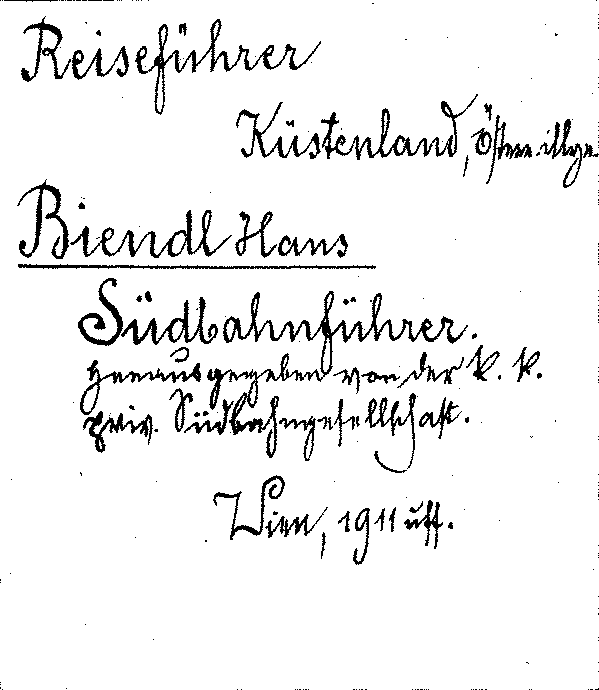 Reiseführer
Küstenland, Österr. illyr.
Biendl Hans
Südbahnführer.
Herausgegeben von der k. k.
priv. Südbahngesellschaft.
Wien, 1911 uff.